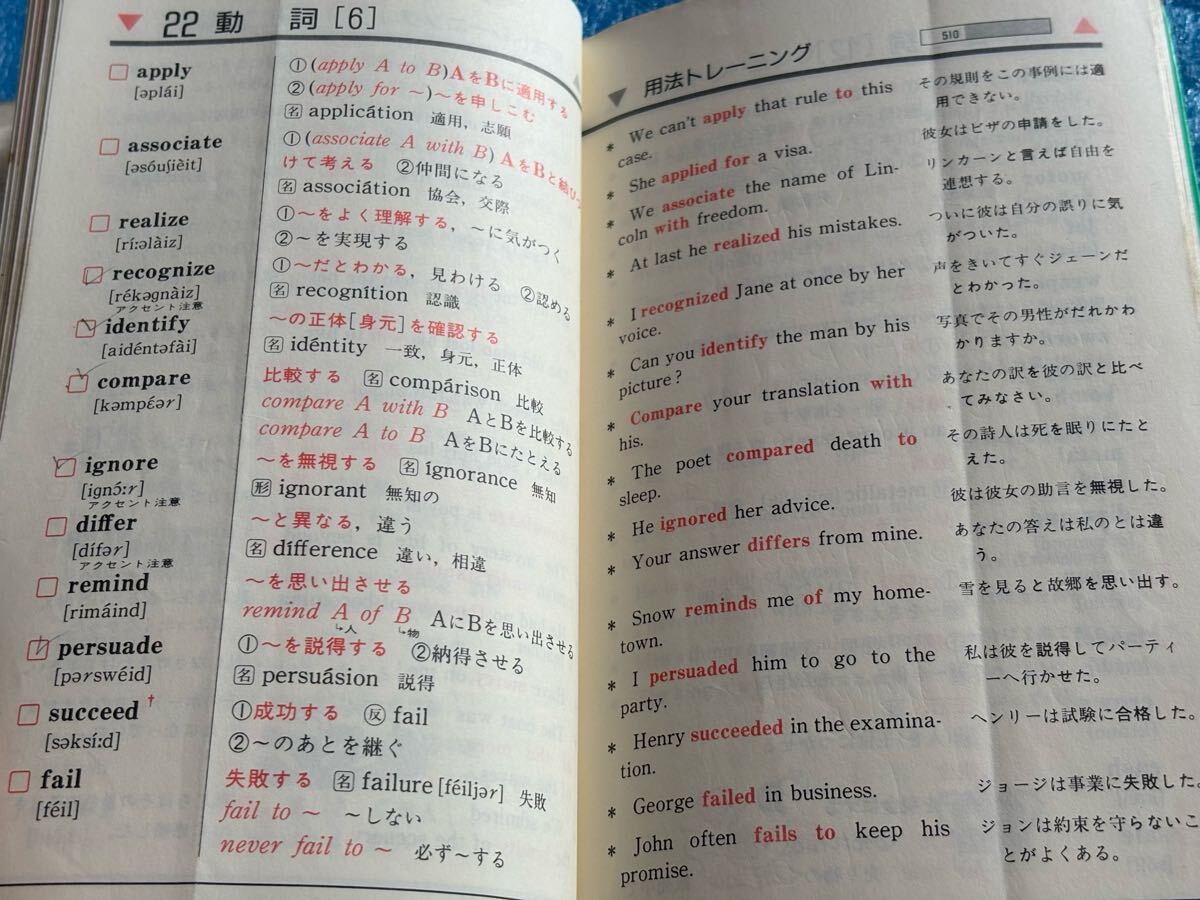 22 動 詞 [6]
apply
[əplái]
① (apply A to B) AをBに適用する
② (apply for ～) ～を申しこむ
名 applicátion 適用, 志願
associate
[əsóuʃièit]
① (associate A with B) AをBと結びつ
けて考える ②仲間になる
名 associátion 協会, 交際
realize
[ríːəlàiz]
①～をよく理解する, ～に気がつく
②～を実現する
recognize
[rékəgnàiz]
アクセント注意
①～だとわかる, 見わける ②認める
名 recognítion 認識
identify
[aidéntəfài]
～の正体[身元]を確認する
名 idéntity 一致, 身元, 正体
compare
[kəmpɛ́ər]
比較する 名 compárison 比較
compare A with B AとBを比較する
compare A to B AをBにたとえる
ignore
[ignɔ́ːr]
アクセント注意
～を無視する 名 ígnorance 無知
形 ignorant 無知の
differ
[dífər]
アクセント注意
～と異なる, 違う
名 dífference 違い, 相違
remind
[rimáind]
～を思い出させる
remind A of B AにBを思い出させる
人 物
persuade
[pərswéid]
①～を説得する ②納得させる
名 persuásion 説得
succeed †
[səksíːd]
①成功する 反 fail
②～のあとを継ぐ
fail
[féil]
失敗する 名 failure [féiljər] 失敗
fail to ～ ～しない
never fail to ～ 必ず～する
510
用法トレーニング
* We can't apply that rule to this
case.
その規則をこの事例には適
用できない。
* She applied for a visa.
彼女はビザの申請をした。
* We associate the name of Lin-
coln with freedom.
リンカーンと言えば自由を
連想する。
* At last he realized his mistakes.
ついに彼は自分の誤りに気
がついた。
* I recognized Jane at once by her
voice.
声をきいてすぐジェーンだ
とわかった。
* Can you identify the man by his
picture?
写真でその男性がだれかわ
かりますか。
* Compare your translation with
his.
あなたの訳を彼の訳と比べ
てみなさい。
* The poet compared death to
sleep.
その詩人は死を眠りにたと
えた。
* He ignored her advice.
彼は彼女の助言を無視した。
* Your answer differs from mine.
あなたの答えは私のとは違
う。
* Snow reminds me of my home-
town.
雪を見ると故郷を思い出す。
* I persuaded him to go to the
party.
私は彼を説得してパーティ
ーへ行かせた。
* Henry succeeded in the examina-
tion.
ヘンリーは試験に合格した。
* George failed in business.
ジョージは事業に失敗した。
* John often fails to keep his
promise.
ジョンは約束を守らないこ
とがよくある。